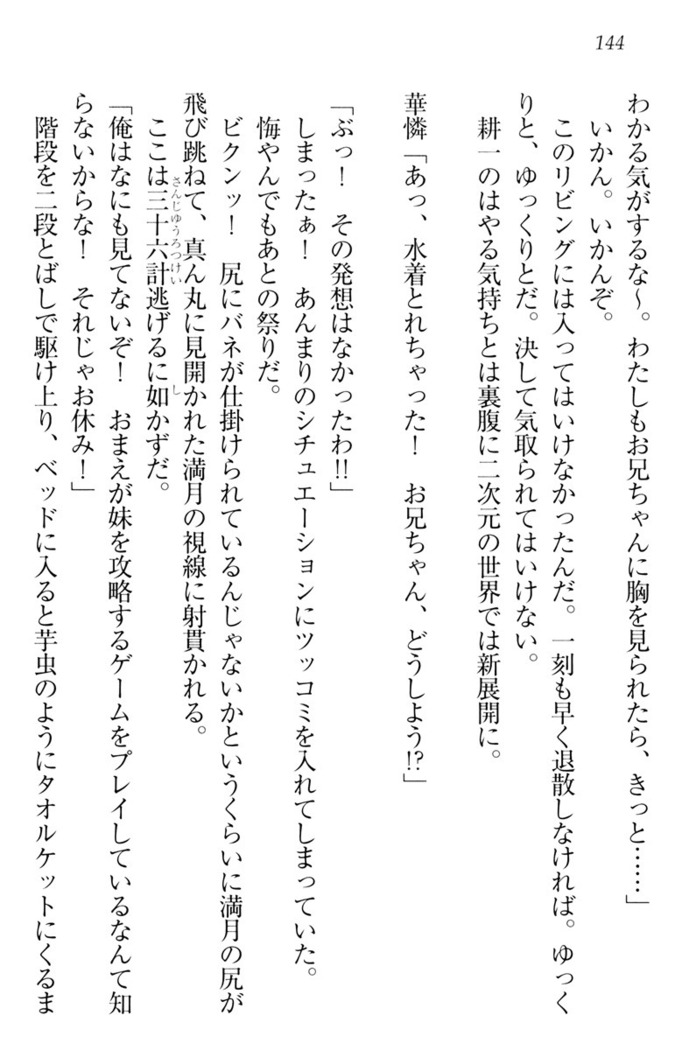 144
わかる気がするな～。わたしもお兄ちゃんに胸を見られたら、きっと……」
いかん。いかんぞ。
このリビングには入ってはいけなかったんだ。一刻も早く退散しなければ。ゆっく
りと、ゆっくりとだ。決して気取られてはいけない。
耕一のはやる気持ちとは裏腹に二次元の世界では新展開に。
華憐「あっ、水着とれちゃった！　お兄ちゃん、どうしよう!?」
「ぶっ！　その発想はなかったわ!!」
しまったぁ！　あんまりのシチュエーションにツッコミを入れてしまっていた。
悔やんでもあとの祭りだ。
ビクンッ！　尻にバネが仕掛けられているんじゃないかというくらいに満月の尻が
飛び跳ねて、真ん丸に見開かれた満月の視線に射貫かれる。
ここは三十六計逃げるに如かずだ。
さんじゅうろっけい
し
「俺はなにも見てないぞ！　おまえが妹を攻略するゲームをプレイしているなんて知
らないからな！　それじゃお休み！」
階段を二段とばしで駆け上り、ベッドに入ると芋虫のようにタオルケットにくるま